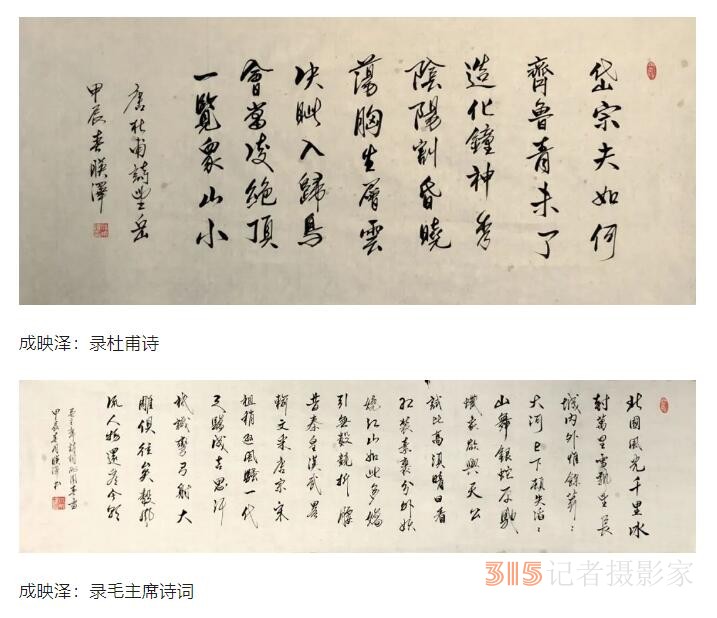 岱宗夫如何
齊魯青未了
造化鐘神秀
陰陽割昏曉
蕩胸生層雲
决眦入歸鳥
會當凌絕頂
一覽衆山小
唐杜甫詩望岳
甲辰春映澤
成映泽：录杜甫诗
北國風光千里冰
封萬里雪飄望長
城内外惟餘莽：
大河上下頓失滔：
山舞銀蛇原馳
蠟象欲與天公
試比高須晴日看
紅裝素裹分外妖
嬈江山如此多嬌
引無數競折腰
昔秦皇漢武略
輸文采唐宗宋
祖稍遜風騷一代
天驕成吉思汗
祇識彎弓射大
雕俱往矣數風
流人物還看今朝
毛主席詩詞沁園春雪
甲辰春月映澤書
315记者摄影家
成映泽：录毛主席诗词